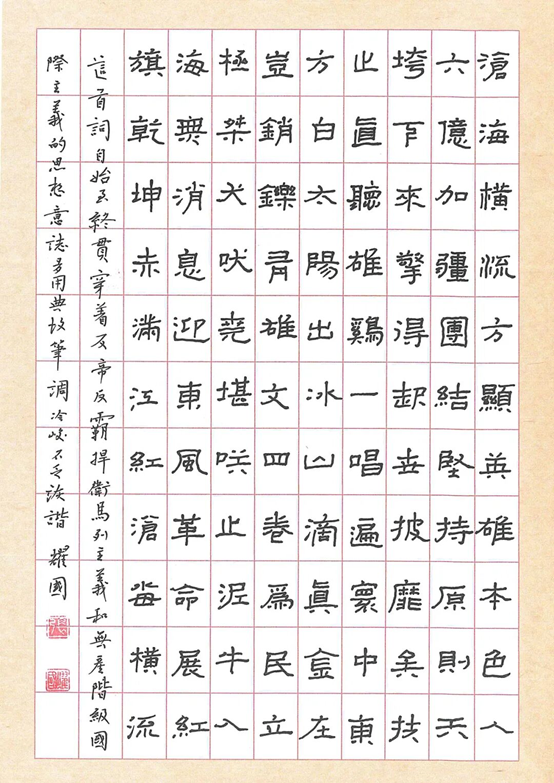 滄海橫流方顯英雄本色人
六億加疆團結堅持原則天
垮下來擎得起世披靡矣扶
止眞聽雄鷄一唱遍寰中東
方白太陽出冰山滴眞金在
豈銷鑠有雄文四卷爲民立
極桀犬吠堯堪咲止泥牛入
海無消息迎東風革命展紅
旗乾坤赤滿江紅滄海橫流
這首詞自始至終貫穿着反帝反霸捍衛馬列主義和無產階級國
際主義的思想意誌多用典故筆調冷峻不乏詼諧 耀國